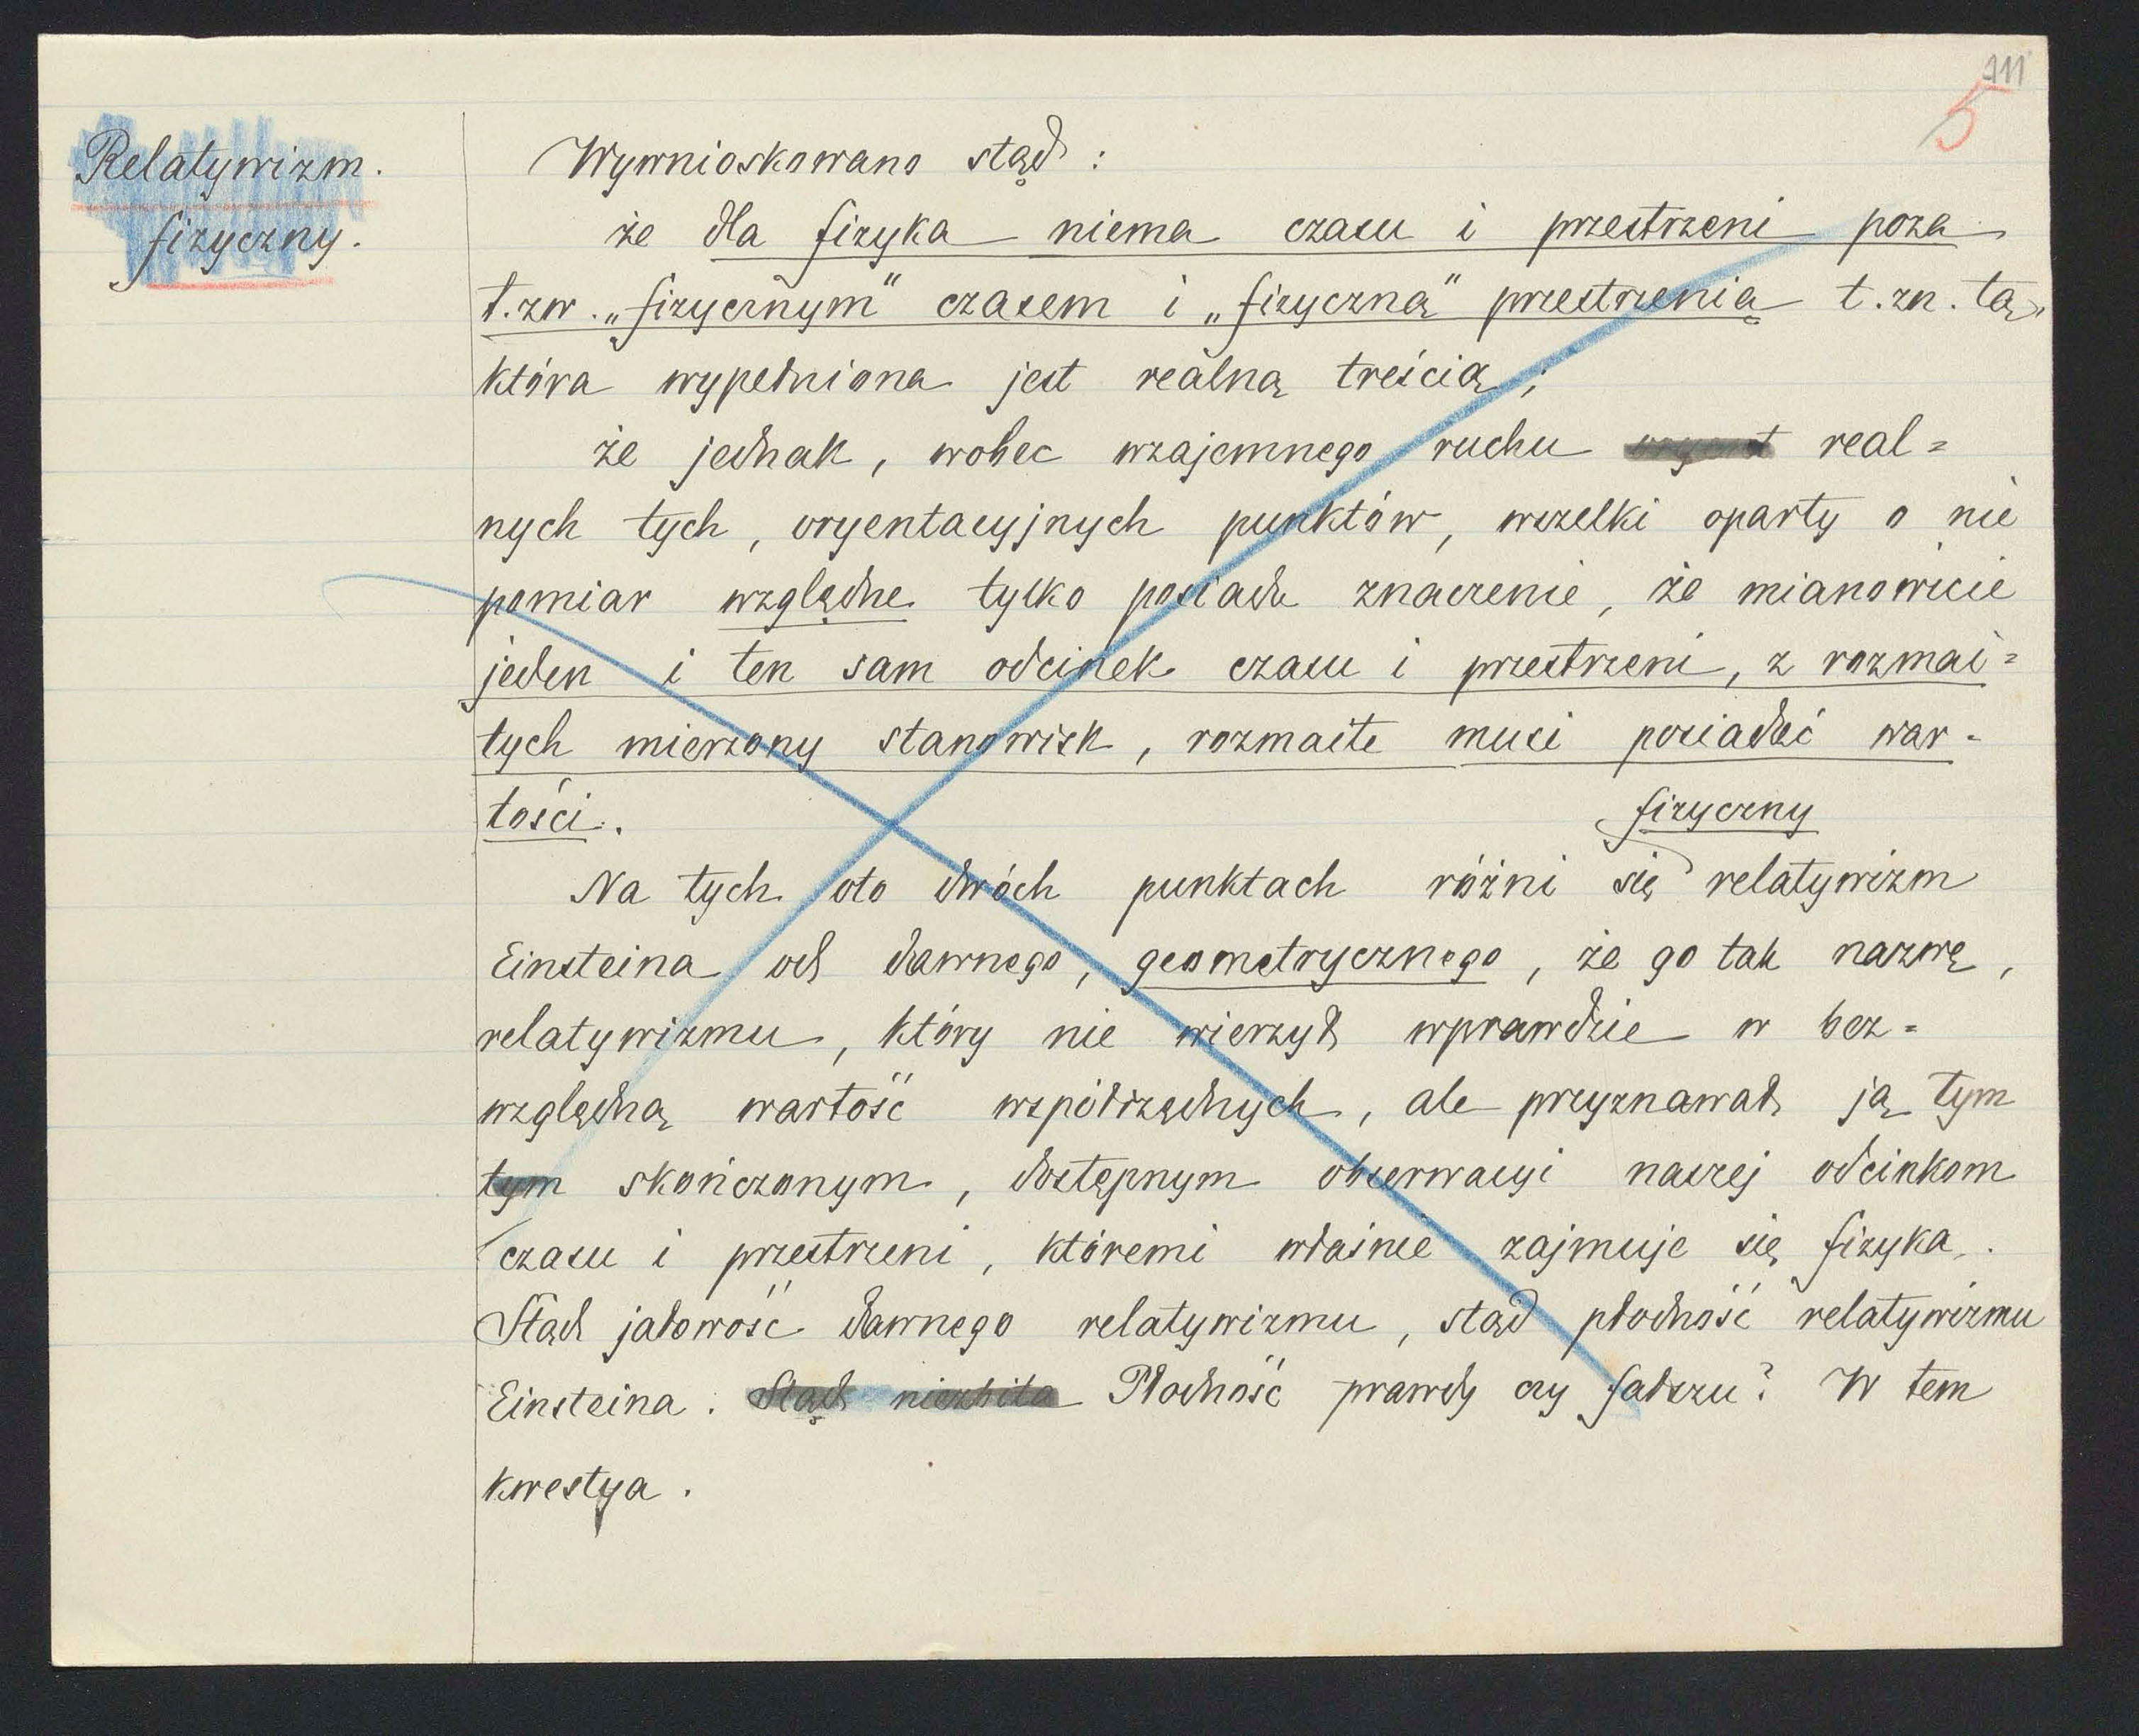 111
5
Relatywizm.
fizyczny.
Wywnioskowano stąd :
że dla fizyka niema czasu i przestrzeni poza
t.zw. „fizycznym" czasem i „fizyczną" przestrzenią t.zn. tą,
która wypełniona jest realną treścią;
że jednak, wobec wzajemnego ruchu oryent real=
nych tych, oryentacyjnych punktów, wszelki oparty o nie
pomiar względne tylko posiada znaczenie, że mianowicie
jeden i ten sam odcinek czasu i przestrzeni, z rozmai=
tych mierzony stanowisk, rozmaite musi posiadać war-
tości.
fizyczny
Na tych oto dwóch punktach różni się relatywizm
Einsteina od dawnego, geometrycznego, że go tak nazwę,
relatywizmu, który nie wierzył wprawdzie w bez=
względną wartość współrzędnych, ale przyznawał ją tym
tym skończonym, dostępnym obserwacyi naszej odcinkom
czasu i przestrzeni, któremi właśnie zajmuje się fizyka.
Stąd jałowość dawnego relatywizmu, stąd płodność relatywizmu
Einsteina. Stąd niezbita Płodność prawdy czy fałszu? W tem
kwestya.